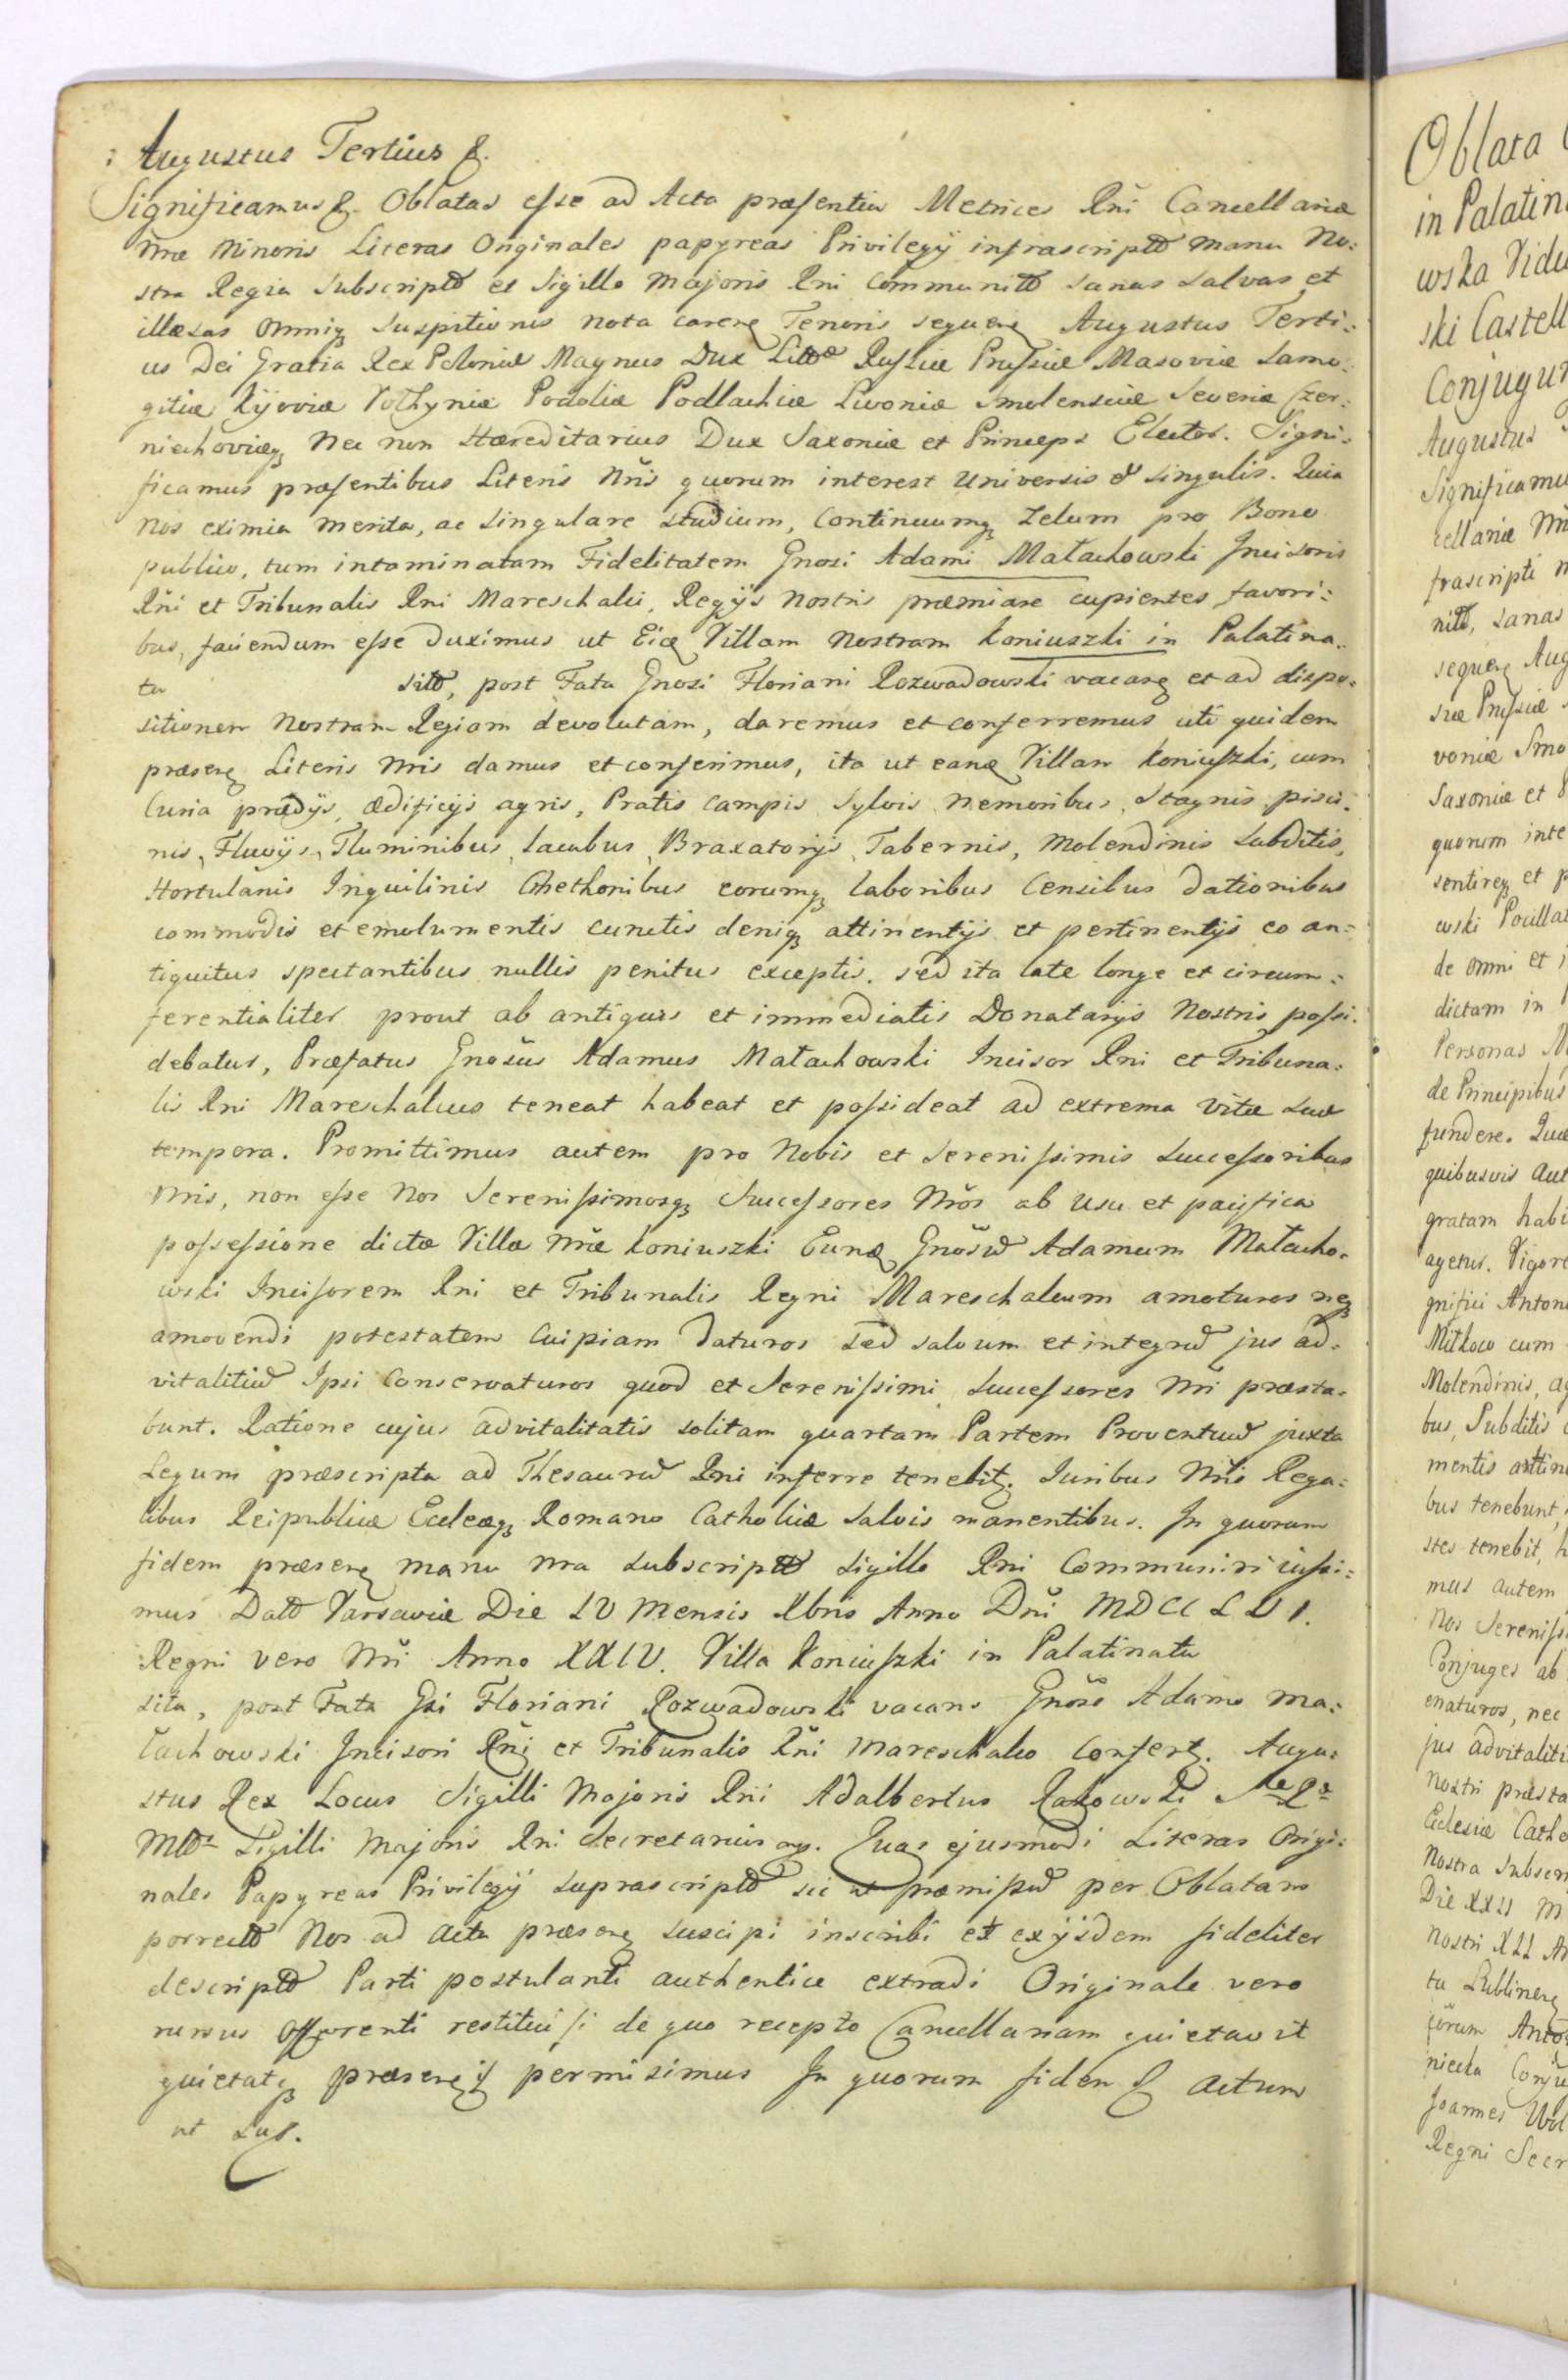 Augustus Tertius &.
Significamus &. Oblatas esse ad Acta præsentia Metrices Rni Cancellariæ
Nræ Minoris Literas Originales papyreas Privilegÿ infrascriptt manu No:
stra Regia Subscriptt et Sigillo Majoris Rni Communitt Sanas Salvas et
illæsas omniq suspitionis nota careñ Tenoris sequeñ Augustus Terti:
us Dei Gratia Rex Poloniæ Magnus Dux Littæ Russiæ Prussiæ Masoviæ Samo:
gitiæ Kÿoviæ Volhyniæ Podoliæ Podlachiæ Livoniæ Smolensciæ Severiæ Czer:
niechoviæq Nec non Hæreditarius Dux Saxoniæ et Princeps Elector. Signi:
ficamus præsentibus Literis Nris quorum interest Universis & singulis. Quia
Nos eximia merita, ac singulare studium, continuumq Zelum pro Bono
publico, tum intaminatam Fidelitatem Gnosi Adami Małachowski Incisoris
Rñi et Tribunalis Rni Mareschalci, Regÿs Nostris præmiare cupientes favori:
bus, faciendum esse duximus ut Eidē Villam Nostram Koniuszki in Palatina:
tu sitt, post Fata Gnosi Floriani Rozwadowski vacañ et ad dispo:
sitionem Nostram Regiam devolutam, daremus et conferremus uti quidem
præseñ Literis Nris damus et conferimus, ita ut eand Villam Koniuszki, cum
Curia prædÿs, ædificÿs agris, Pratis campis Sylvis Nemoribus, Stagnis pisci:
nis, Fluvÿs, Fluminibus, Lacubus, Braxatorÿs, Tabernis, Molendinis Subditis,
Hortulanis Inquilinis Cmethonibus eorumq laboribus Censibus dationibus
commodis et emolumentis cunctis deniq attinentÿs et pertinentÿs eo an:
tiquitus spectantibus nullis penitus exceptis. sed ita late longe et circum:
ferentialiter prout ab antiquis et immediatis Donatarÿs Nostris possi:
debatur, Præfatus Gnosus Adamus Małachowski Incisor Rni et Tribuna:
lis Rni Mareschalcus teneat habeat et possideat ad extrema vitæ suæ
tempora. Promittimus autem pro Nobis et Serenissimis Successoribus
Nris, non esse Nos Serenissimosq Successores Nros ab usu et pacifica
possessione dictæ Villæ Nræ Koniuszki Eund Gnosū Adamum Małacho:
wski Incisorem Rni et Tribunalis Regni Mareschalcum amoturos neq
amovendi potestatem Cuipiam daturos sed salvum et integrū jus ad:
vitalitiū Ipsi Conservaturos quod et Serenissimi Successores Nri præsta:
bunt. Ratione cujus advitalitatis solitam quartam Partem Proventuū juxta
Legum præscripta ad Thesaurū Rni inferre tenebit. Juribus Nris Rega:
libus Reipublicæ Eccleæq Romano Catholicæ Salvis manentibus. In quorum
fidem præseñ manu Nra subscriptt Sigillo Rni Communiri jussi:
mus Datt Varsaviæ Die IV Mensis Xbris Anno Dñi MDCCLVI.
Regni vero Nri Anno XXIV. Villa Koniuszki in Palatinatu
sita, post Fata Gsi Floriani Rozwadowski vacans Gnoso Adamo Ma:
łachowski Incisori Rñi et Tribunalis Rñi Mareschalco Confert. Augu:
stus Rex Locus Sigilli Majoris Rni Adalbertus Rakowski
Sigilli Majoris Rni Secretarius. Quas ejusmodi Literas Origi:
nales Papyreas Privilegÿ suprascriptt sic ut præmissū per Oblatam
porrectt Nos ad Acta præseñ suscipi inscribi et exÿsdem fideliter
descriptt Parti postulanti authentice extradi Originale vero
rursus offerenti restitui si de quo recepto Cancellariam quietavit
quietatq præseñ permisimus In quorum fidem & Actum
ut Sup.
Oblata
in Palatin
wska Vidu
ski Castell
Conjugu
Augustus
Significamu
cellariæ
frascripti
nitt, sanas
sequeñ Aug
siæ Prussiæ
voniæ Smo
Saxoniæ et
quorum inte
sentireq et
wski Pocilla
de omni et
dictam in
Personas
de Principibus
fundere.
quibusvis aut
gratam habi
agetur. Vigore
gnifici Anton
Mitkow cum
Molendinis, ag
bus, Subditis
mentis attin
bus tenebunt,
stes tenebit, h
mus autem
Nos Sereniss
Conjuges ab
enaturos, nec
jus advitaliti
Nostri præsta
Ecclesiæ Catho
Nostra Subscri
Die XXII M
Nostri XII An
tu Lublineñ
Joannes Wol
Regni Secr